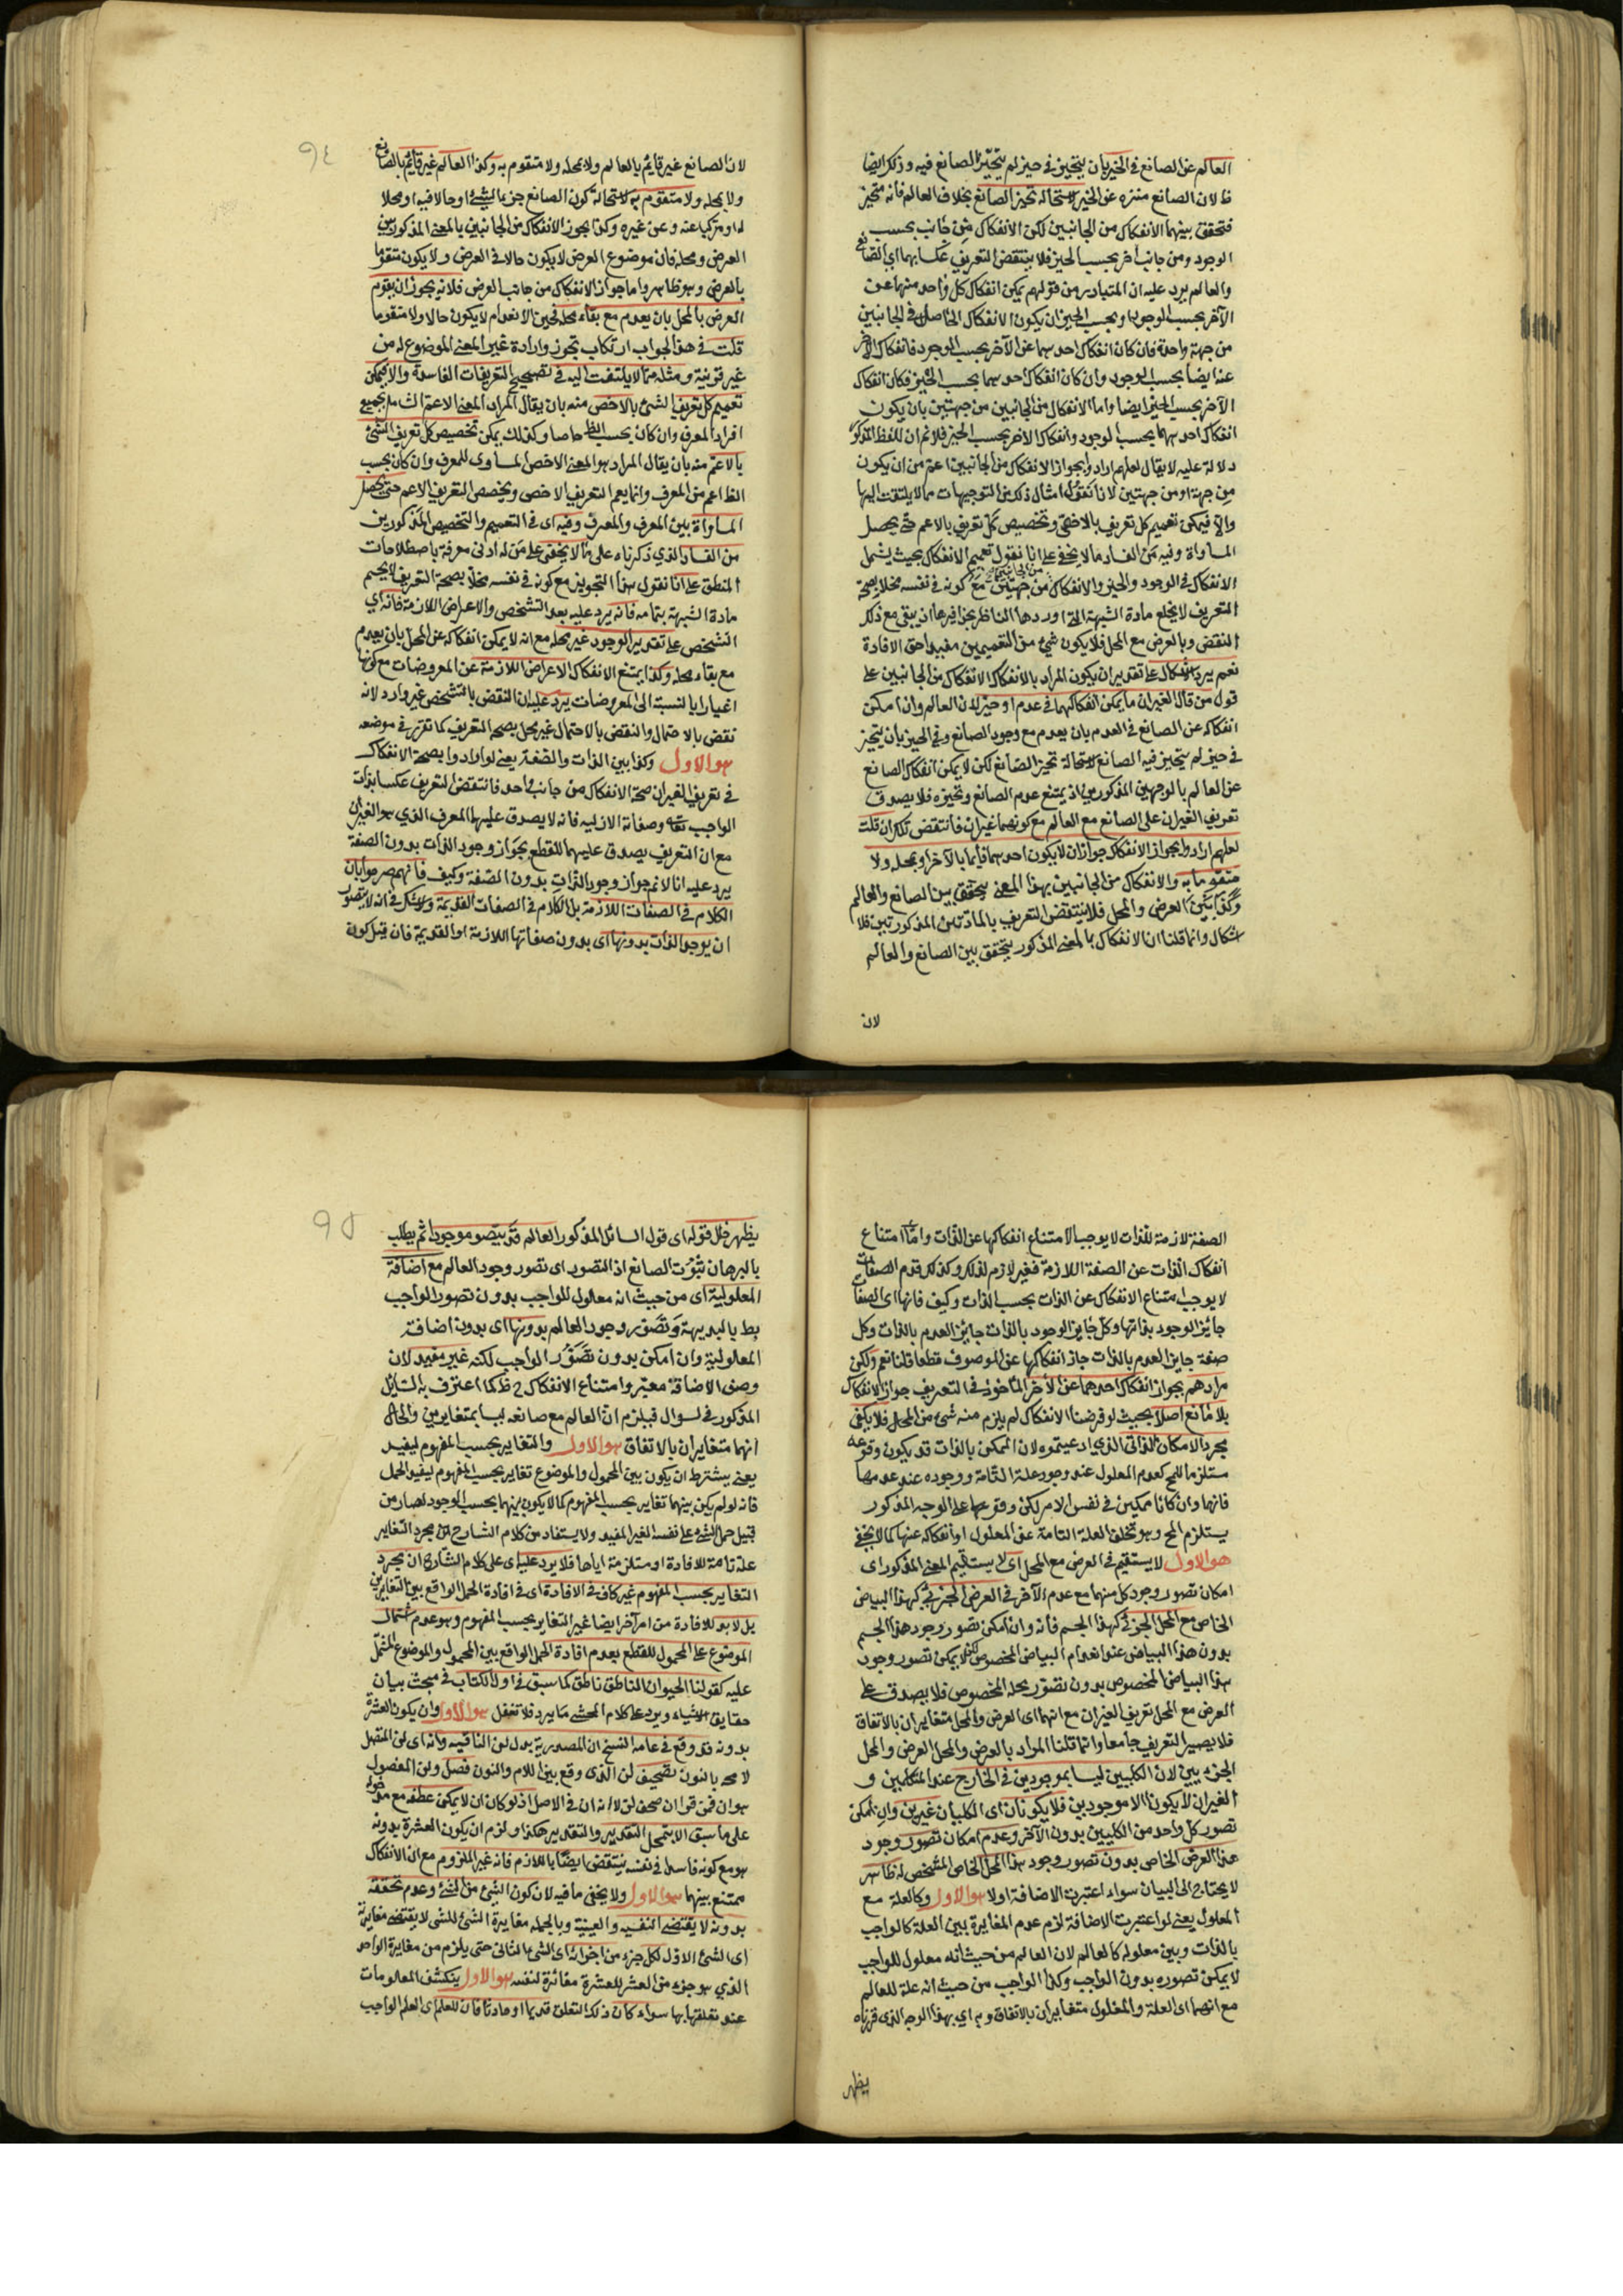 العالم عن الصانع في الخيربان يتحيز في حيز لم يتحيز الصانع فيه وذلك ايضا
ظ لان الصانع منزه عن الحيز لاستحالة تحيز الصانع بخلاف العالم فانه متحيز
فتحقق بينهما الانفكاك من الجانبين لكن الانفكاك من جانب بحسب
الوجود ومن جانب اخر بحسب الحيز فلا ينتقض التعريف عكسا بهما اي الصانع
والعالم يرد عليه ان المتبادر من قولهم يمكن انفكاك كل واحد منهما عن
الآخر بحسب الوجود او بحسب الحيز ان يكون الانفكاك الحاصل في الجانبين
من جهة واحدة فان كان انفكاك احدهما عن الآخر بحسب الوجود فانفكاك الآخر
عنه ايضا بحسب الوجود وان كان انفكاك احدهما بحسب الحيز فكان انفكاك
الآخر بحسب الحيز ايضا واما الانفكاك من الجانبين من جهتين بان يكون
انفكاك احدهما بحسب الوجود وانفكاك الاخر بحسب الحيز فلا نم ان للفظ المذكور
دلالة عليه لا يقال لعلهم ارادوا بجواز الانفكاك من الجانبين اعم من ان يكون
من جهة او من جهتين لانا نقول امثال ذلك من التوجيهات مما لا يلتفت اليها
والا فيمكن تعميم كل تعريف بالاخص وتخصيص كل تعريف بالاعم حتى يحصل
المساواة وفيه من الفساد ما لا يخفى على انا نقول تعميم الانفكاك بحيث يشمل
الانفكاك في الوجود والحيز والانفكاك من الجانبين من جهتين مع كونه في نفسه مخلا بصحة
التعريف لا يخلع مادة الشبهة التي اوردها الناظر بحذافيرها اذ يبقى مع ذلك
النقض وبالعرض مع المحل فلا يكون شيء من التعميمين مفيدا حق الافادة
نعم يرد الاشكال على تقدير ان يكون المراد بالانفكاك الانفكاك من الجانبين على
قول من قال الغيران ما يمكن انفكاكهما في عدم او حيز لان العالم وان امكن
انفكاكه عن الصانع في العدم بان يعدم مع وجود الصانع وفي الحيز بان يتحيز
في حيز لم يتحيز فيه الصانع لاستحالة تحيز الصانع لكن لا يمكن انفكاك الصانع
عن العالم بالوجهين المذكورين اذ يمتنع عدم الصانع وتحيزه فلا يصدق
تعريف الغيران على الصانع مع العالم مع كونهما غيران فانتقض تلك ان قلت
لعلهم ارادوا بجواز الانفكاك جواز ان لا يكون احدهما قائما بالآخر او بمحله ولا
متقوما به والانفكاك من الجانبين بهذا المعنى يتحقق بين الصانع والعالم
وكذا بين العرض والمحل فلا ينتقض التعريف بالمادتين المذكورتين فلا
اشكال وانما قلنا ان الانفكاك بالمعنى المذكور يتحقق بين الصانع والعالم
لان
٩٤
لان الصانع غير قائم بالعالم ولا بمحله ولا متقوم به وكذا العالم غير قائم بالصانع
ولا بمحله ولا متقوم به لاستحالة كون الصانع جزءا لشيء او حالا فيه او محلا
له او مركبا عنه وعن غيره وكذا يجوز الانفكاك من الجانبين بالمعنى المذكور بين
العرض ومحله فان موضوع العرض لا يكون حالا في العرض ولا يكون متقوما
بالعرض وهو ظاهر واما جواز الانفكاك من جانب العرض فلانه يجوز ان يقوم
العرض بالمحل بان يعدم مع بقاء محله فحين الانعدام لا يكون حالا ولا متقوما
قلت في هذا الجواب ارتكاب تجوز وارادة غير المعنى الموضوع له من
غير قرينة ومثله مما لا يلتفت اليه في تصحيح التعريفات الفاسدة والا فيمكن
تعميم كل تعريف الشئ بالاخص منه بان يقال المراد المعنى الاعم الشامل بجميع
افراد المعرف وان كان بحسب الظ خاصا وكذلك يمكن تخصيص كل تعريف الشئ
بالاعم منه بان يقال المراد هو المعنى الاخص المساوي للمعرف وان كان بحسب
الظ اعم من المعرف وانما يعم التعريف الاخص ويخصص التعريف الاعم حتى يحصل
المساواة بين المعرف والمعرف وفيه اي في التعميم والتخصيص المذكورين
من الفساد الذي ذكرناه على ما لا يخفى على من له ادنى معرفة باصطلاحات
المنطق على انا نقول هذا التجويز مع كونه في نفسه مخلا بصحة التعريف لا يحسم
مادة الشبهة بتمامه فانه يرد عليه بعد التشخص والاعراض اللازمة فانه اي
التشخص على تقدير الوجود غير محله مع انه لا يمكن انفكاكه عن المحل بان يعدم
مع بقاء محله وكذا يمتنع الانفكاك الاعراض اللازمة عن المعروضات مع كونها
اغيارا بالنسبة الى المعروضات يرد عليه ان النقض بالتشخص غير وارد لانه
نقض بالاحتمال والنقض بالاحتمال غير مخل بصحة التعريف كما تقرر في موضعه
هو الاول وكذا بين الذات والصفة يعني لو ارادوا بصحة الانفكاك
في تعريف الغيران صحة الانفكاك من جانب واحد فانتقض التعريف عكسا بذات
الواجب تعالى وصفاته الازلية فانه لا يصدق عليهما المعرف الذي هو الغيران
مع ان التعريف يصدق عليهما للقطع بجواز وجود الذات بدون الصفة
يرد عليه انا لا نم جواز وجود الذات بدون الصفة وكيف فانهم صرحوا بان
الكلام في الصفات اللازمة بل الكلام في الصفات القديمة ولا شك في انه لا يتصور
ان يوجد الذات بدونها اي بدون صفاتها اللازمة او القديمة فان قيل كون
الصفة لازمة للذات لا يوجب الامتناع انفكاكها عن الذات واما امتناع
انفكاك الذات عن الصفة اللازمة فغير لازم لذلك وكذلك قدم الصفات
لا يوجب امتناع الانفكاك عن الذات بحسب الذات وكيف فانها اي الصفات
جائز الوجود بذاتها وكل جائز الوجود بالذات جايز العدم بالذات وكل
صفة جايز العدم بالذات جاز انفكاكها عن الموصوف قطعا قلنا نعم ولكن
مرادهم بجواز انفكاك احدهما عن الآخر المأخوذ في التعريف جواز الانفكاك
بلا مانع اصلا بحيث لو فرضنا الانفكاك لم يلزم منه شئ من المحل فلا يكفي
مجرد الامكان الذاتي الذي ادعيتموه لان الممكن بالذات قد يكون وقوعه
مستلزما للمح كعدم المعلول عند وجود علة التامة ووجوده عند عدمها
فانها وان كانا ممكنين في نفس الامر لكن وقوعهما على الوجه المذكور
يستلزم المح وهو تخلف العلة التامة عن المعلول او انفكاكه عنها كما لا يخفى
هو الاول لا يستقيم في العرض مع المحل اي لا يستقيم المعنى المذكور اي
امكان تصور وجود كل منهما مع عدم الآخر في العرض الجزئي كهذا البياض
الخاص مع المحل الجزئي كهذا الجسم فانه وان امكن تصور وجود هذا الجسم
بدون هذا البياض عند انعدام البياض المخصوص لكن لا يمكن تصور وجود
هذا البياض المخصوص بدون تصور محله المخصوص فلا يصدق على
العرض مع المحل تعريف الغيران مع انهما اي العرض والمحل متغايران بالاتفاق
فلا يصير التعريف جامعا وانما قلنا المراد بالعرض والمحل العرض والمحل
الجزئيين لان الكليين ليسا بموجودين في الخارج عند المتكلمين و
الغيران لا يكونا الا موجودين فلا يكونان اي الكليان غيرين وان امكن
تصور كل واحد من الكليين بدون الآخر وعدم امكان تصور وجود
هذا العرض الخاص بدون تصور وجود هذا المحل الخاص المشخص له ظاهر
لا يحتاج الى البيان سواء اعتبرت الاضافة اولا هو الاول وكالعلة مع
المعلول يعني لو اعتبرت الاضافة لزم عدم المغايرة بين العلة كالواجب
بالذات وبين معلوله كالعالم لان العالم من حيث انه معلول للواجب
لا يمكن تصوره بدون الواجب وكذا الواجب من حيث انه علة للعالم
مع انهما اي العلة والمعلول متغايران بالاتفاق وبه اي بهذا الوجه الذي قررناه
يظهر
٩٥
يظهر خلل قوله اي قول السائل المذكور العالم قد يتصور موجودا ثم يطلب
بالبرهان ثبوت الصانع اذ التصور اي تصور وجود العالم مع اضافة
المعلولية اي من حيث انه معلول للواجب بدون تصور الواجب
بط بالبديهة وتصور وجود العالم بدونها اي بدون اضافة
المعلولية وان امكن بدون تصور الواجب لكنه غير مفيد لان
وصف الاضافة معتبر وامتناع الانفكاك ح ظ كما اعترف به السائل
المذكور في السوال فيلزم ان العالم مع صانعه ليسا بمتغايرين والحال
انهما متغايران بالاتفاق هو الاول والتغاير بحسب المفهوم ليفيد
يعني يشترط ان يكون بين المحمول والموضوع تغاير بحسب المفهوم ليفيد الحمل
فانه لو لم يكن بينهما تغاير بحسب المفهوم كما لا يكون بينهما بحسب الوجود لصار من
قبيل حمل الشئ على نفسه الغير المفيد ولا يستفاد من كلام الشارح ان مجرد التغاير
علة تامة للافادة او مستلزمة اياها فلا يرد عليه اي على كلام الشارح ان مجرد
التغاير بحسب المفهوم غير كاف في الافادة اي في افادة الحمل الواقع بين المتغايرين
بل لا بد للافادة من امر آخر ايضا غير التغاير بحسب المفهوم وهو عدم اشتمال
الموضوع على المحمول للقطع بعدم افادة الحمل الواقع بين المحمول والموضوع المشتمل
عليه كقولنا الحيوان الناطق ناطق كما سبق في اول الكتاب في مبحث بيان
حقايق الاشياء ويرد على كلام المحشي ما يرد فلا تغفل هو الاول وان يكون العشرة
بدونه قد وقع في عامة النسخ ان المصدرية بدل لن النافية وانه اي لن المتصل
لامه بالنون تصحيف لن الذي وقع بين اللام والنون فصل ولن المفصول
هو ان فمن قرا ان صحف لن لانه ان في الاصل اذ لو كان ان لا يمكن عطفه مع مدخوله
على ما سبق الا بتمحل التقدير والتقدير هكذا ولزم ان يكون العشرة بدونه
هو مع كونه فاسدا في نفسه ينتقض ايضا باللازم فانه غير الملزوم مع ان الانفكاك
ممتنع بينهما هو الاول ولا يخفى ما فيه لان كون الشئ من الشئ وعدم تحققه
بدونه لا يقتضي النفسية والعينية وبالجملة مغايرة الشئ للشئ لا يقتضي مغايرة
اي الشئ الاول لكل جزء من اجزائه اي الشئ الثاني حتى يلزم من مغايرة الواحد
الذي هو جزء من العشر للعشرة مغائرة لنفسه هو الاول ينكشف المعلومات
عند تعلقها بها سواء كان ذلك التعلق قديما او حادثا فان للعلم اي العلم الواجب